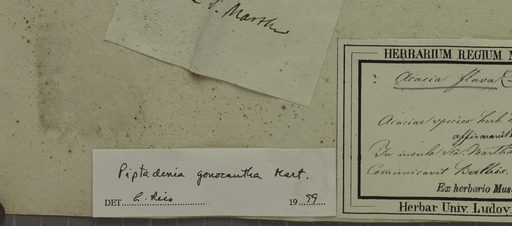 St. Martha
HERBARIUM REGIUM M
? Acacia flava
Acaciae species herb.
affirmavit
In insula Sta. Martha
Communicavit Balbis.
Ex herbario Mus
Herbar Univ. Ludov
Piptadenia gonoacantha Mart.
DET. 19 99